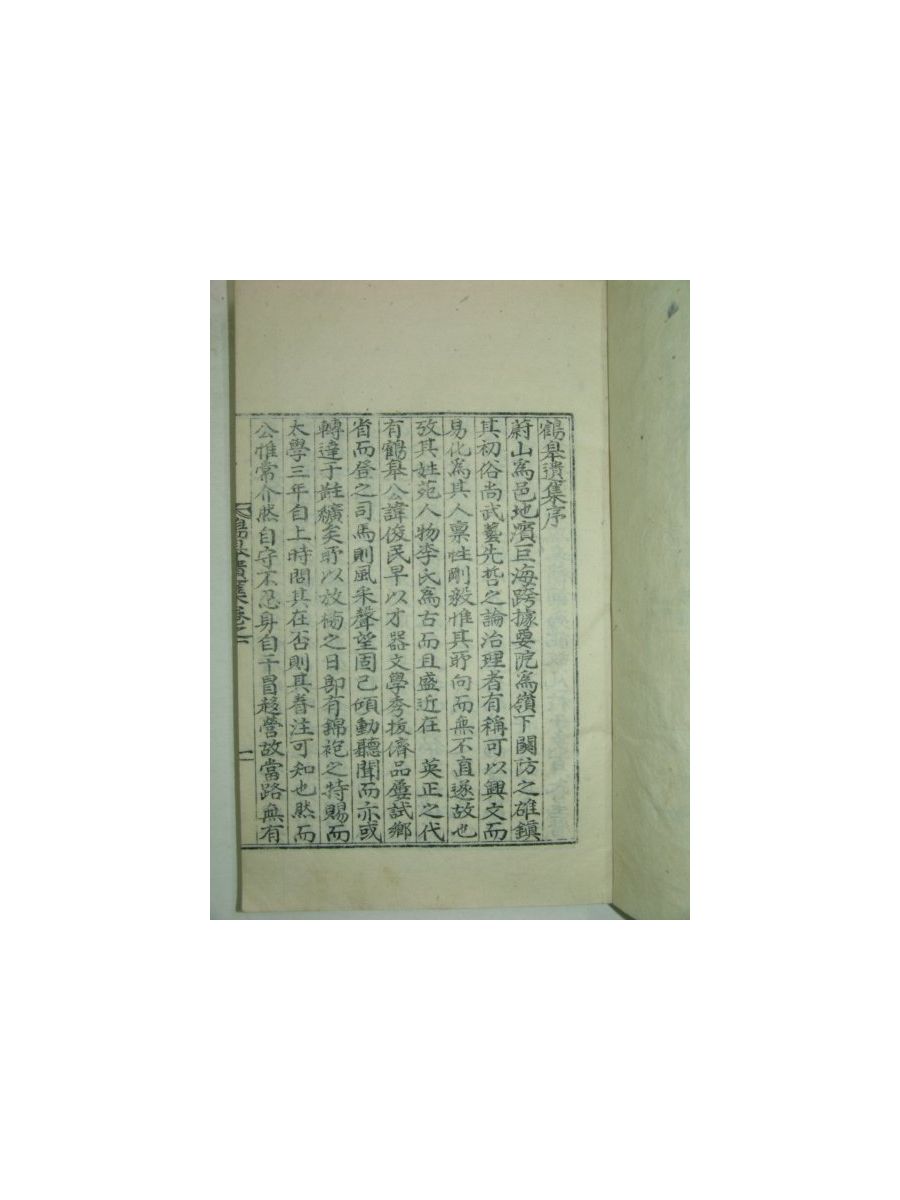 鶴皋遺集序
蔚山爲邑地濱巨海跨據要阨爲嶺下關防之碓鎭
其初俗尙武藝先哲之論治理者有稱可以興文而
易化爲其人稟性剛毅惟其所向而無不直遂故也
攷其姓苑人物李氏爲古而且盛近在 英正之代
有鶴皋公諱俊民早以才器文學秀拔儕品屢試鄕
省而登之司馬則風采聲望固已傾動聽聞而亦或
轉達于黈纊矣所以放榜之日卽有錦袍之特賜而
太學三年自上時問其在否則其眷注可知也然而
公惟常介然自守不忍身自干冒趍營故當路無有
遺集卷之一
一